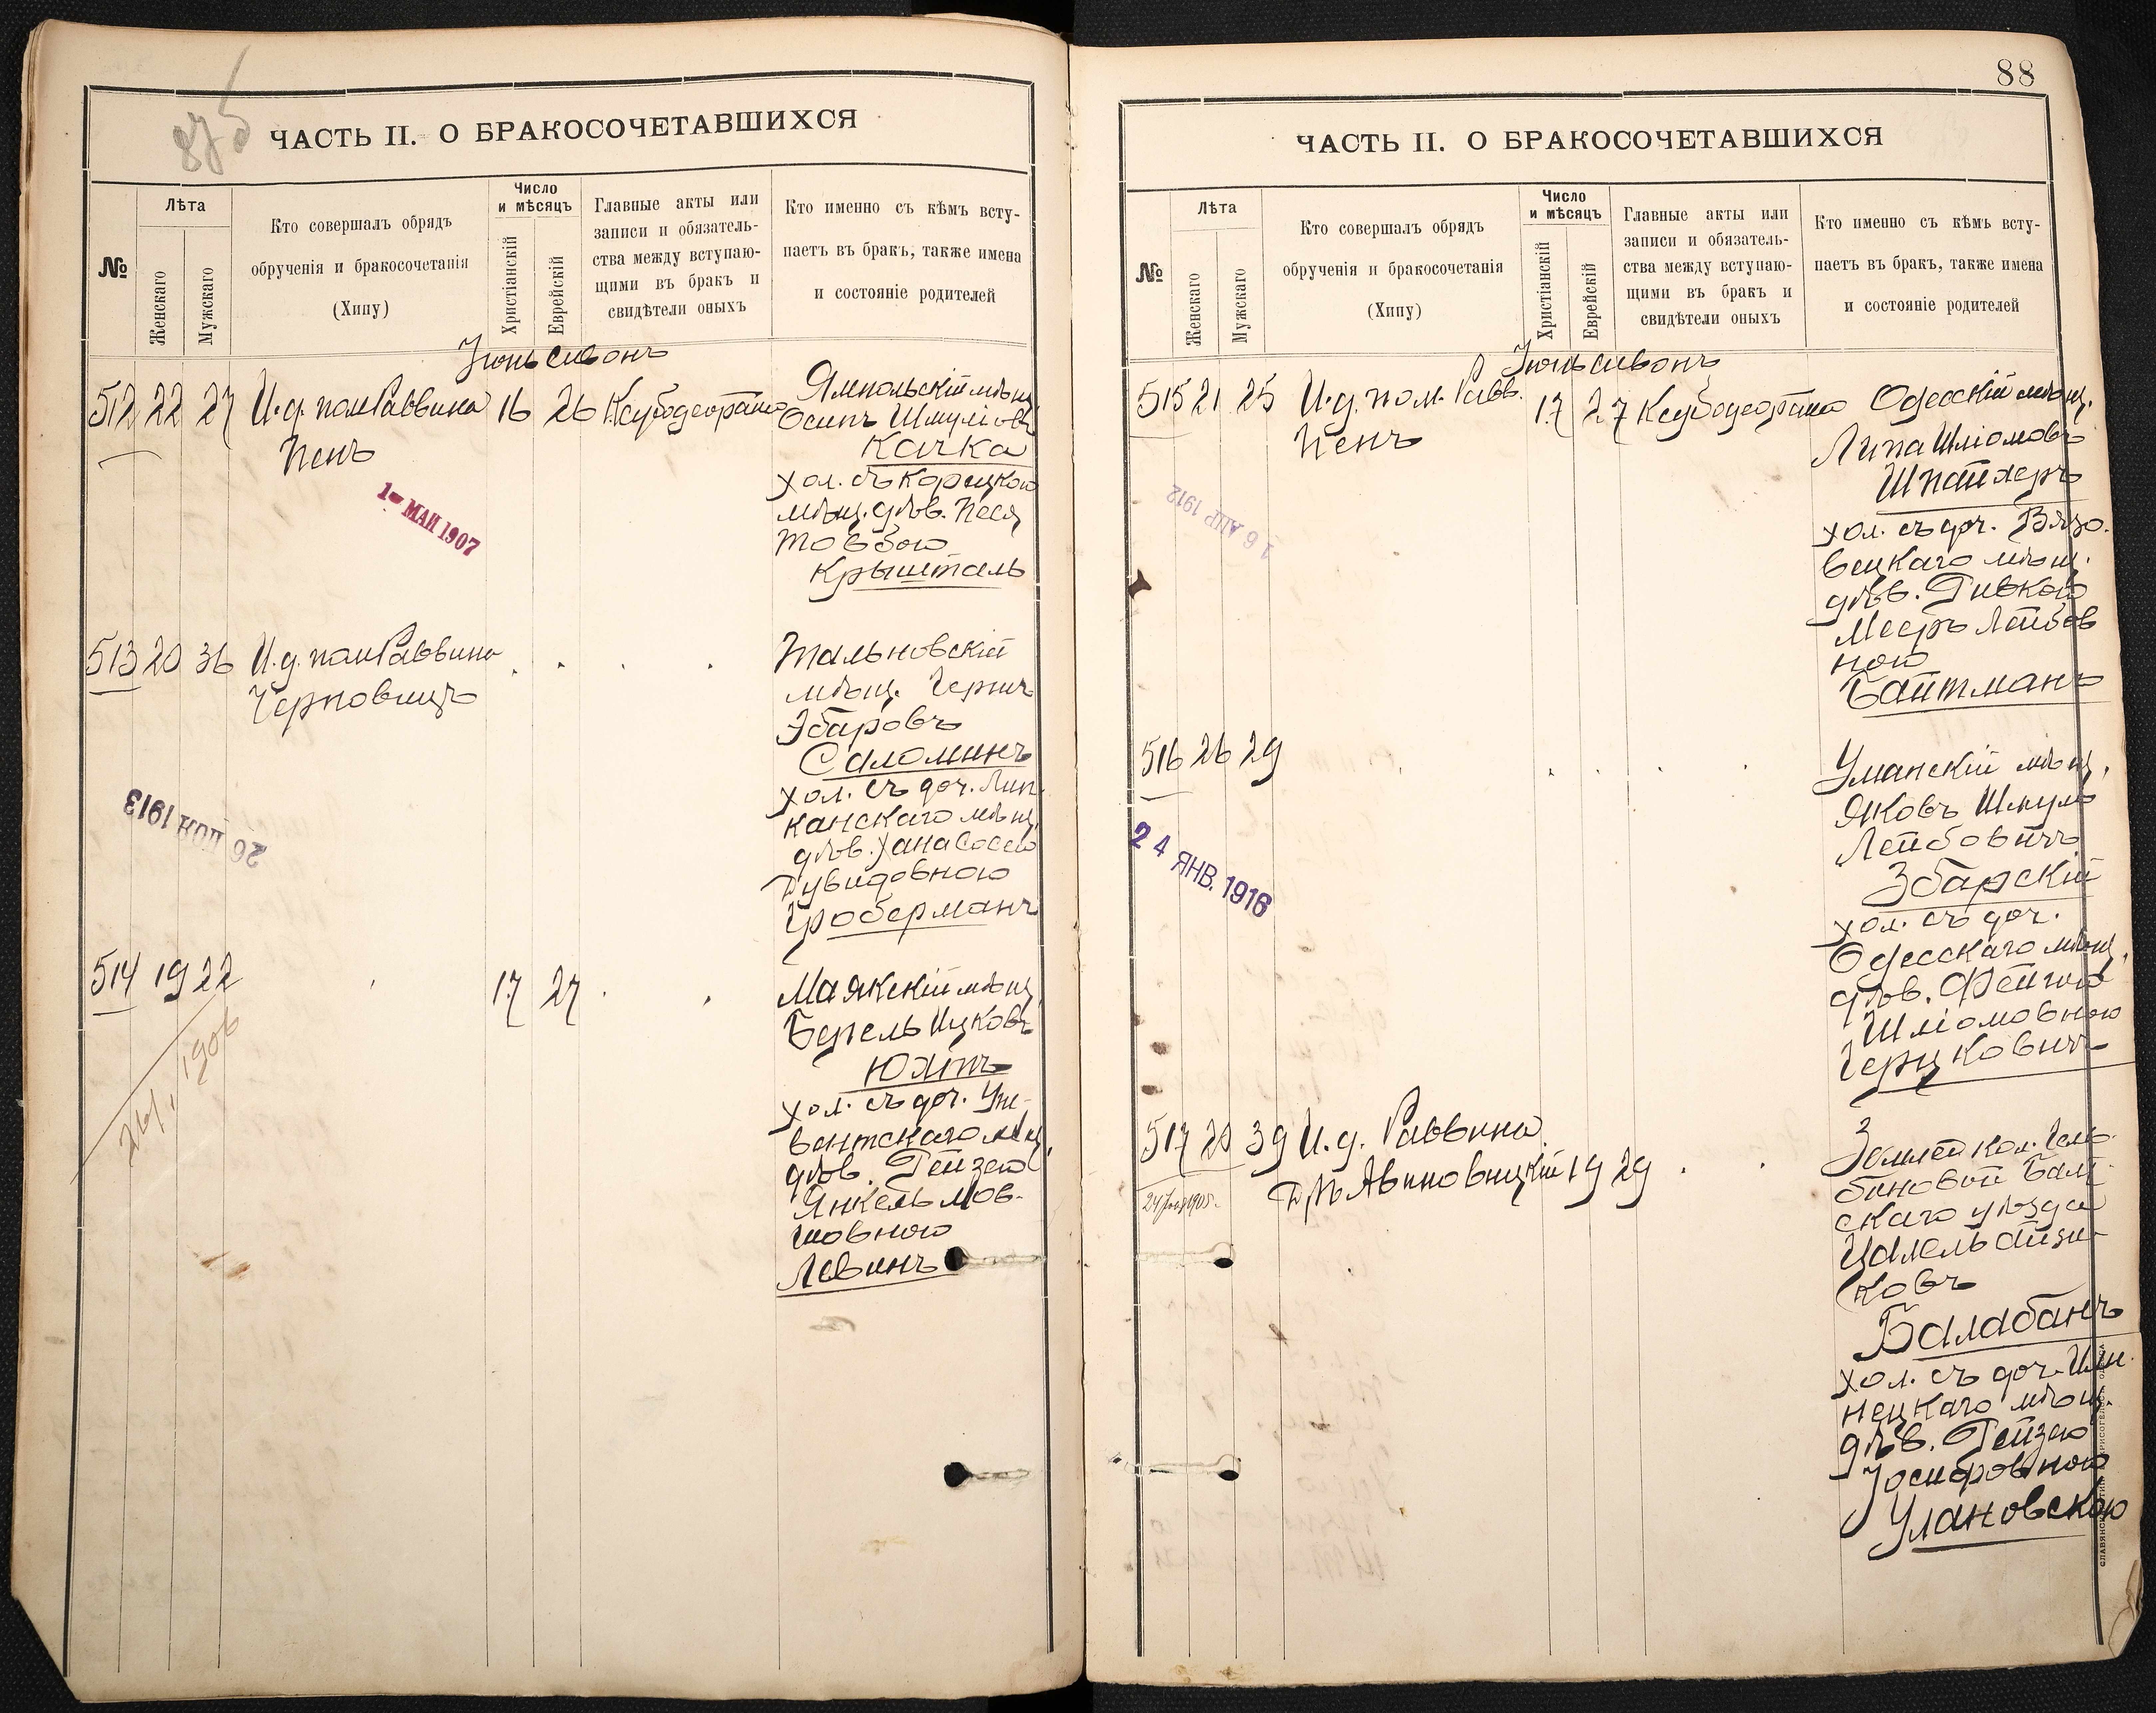 87б
ЧАСТЬ II. О БРАКОСОЧЕТАВШИХСЯ
№
Лѣта
Женскаго
Мужскаго
Кто совершалъ обрядъ
обрученія и бракосочетанія
(Хипу)
Число
и мѣсяцъ
Христіанскій
Еврейскій
Главные акты или
записи и обязатель-
ства между вступаю-
щими въ бракъ и
свидѣтели оныхъ
Кто именно съ кѣмъ всту-
паетъ въ бракъ, также имена
и состояніе родителей
Іюнь Сивонъ
512 22 27 И. д. пом Раввина 16 26
Пенъ
Ямпольскій мѣщ.
Осипъ Шмуліовъ
Качка
хол. съ Корецкою
мѣщ. дѣв. Песя
Товбою
Крышталь
1- МАЙ 1907
513 20 36 И. д. пом Раввина
Тальновскій
мѣщ.
Саломинъ
хол. съ доч. Лип
канскаго мѣщ.
дѣв. Хана Соссею
Дувидовною
Гроберманъ
26 НОЯ 1913
514 19 22 17 27
Маякскій мѣщ.
Берель Ицковъ
Юхтъ
хол. съ доч.
дѣв. Рейзею
Янкель Мов-
шовною
Левинъ
1906
88
ЧАСТЬ II. О БРАКОСОЧЕТАВШИХСЯ
№
Лѣта
Женскаго
Мужскаго
Кто совершалъ обрядъ
обрученія и бракосочетанія
(Хипу)
Число
и мѣсяцъ
Христіанскій
Еврейскій
Главные акты или
записи и обязатель-
ства между вступаю-
щими въ бракъ и
свидѣтели оныхъ
Кто именно съ кѣмъ всту-
паетъ въ бракъ, также имена
и состояніе родителей
Іюнь Сивонъ
515 21 25 И. д. пом. Равв. 17 27
Пенъ
Одесскій мѣщ.
Липа Шліомовъ
Шпайхеръ
хол. съ доч. Вязо-
вецкаго мѣщ.
дѣв. Ривкою
Мееръ Лейбов
ною
Байтманъ
16 АПР 1912
516 26 29
Уманскій мѣщ.
Яковъ Шмуль
Лейбовичъ
Збарскій
хол. съ доч.
Одесскаго мѣщ.
дѣв. Фейгою
Шліомовною
Герцковичъ
24 ЯНВ. 1916
517 20 39 И. д. Раввина
Дръ Авиновицкій 19 29
скаго уѣзда
ковъ
Балабанъ
хол. съ доч.
нецкаго мѣщ.
дѣв. Рейзею
Іосифовною
Улановскою